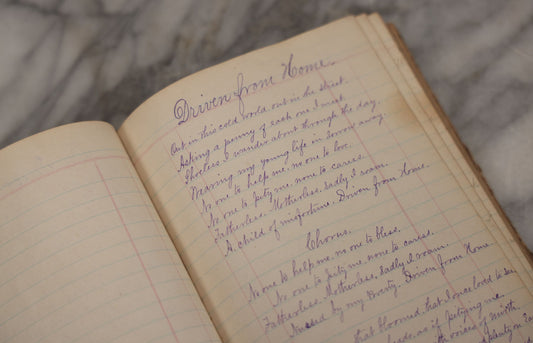 Driven from Home.
Out in this cold world, out in the street.
Asking a penny of each one I meet.
Shoeless I wander about through the day.
Wearing my young life in sorrow away.
No one to help me, no one to love.
No one to pity me, none to caress.
Fatherless, Motherless, sadly I roam.
A child of misfortune, Driven from Home.
Chorus.
No one to help me, no one to bless.
No one to pity me, none to caress.
Fatherless, Motherless, sadly I roam.
Nursed by my Poverty, Driven from Home.
that bloomed, that I once loved to see
as if pitying me
the voices of mirth